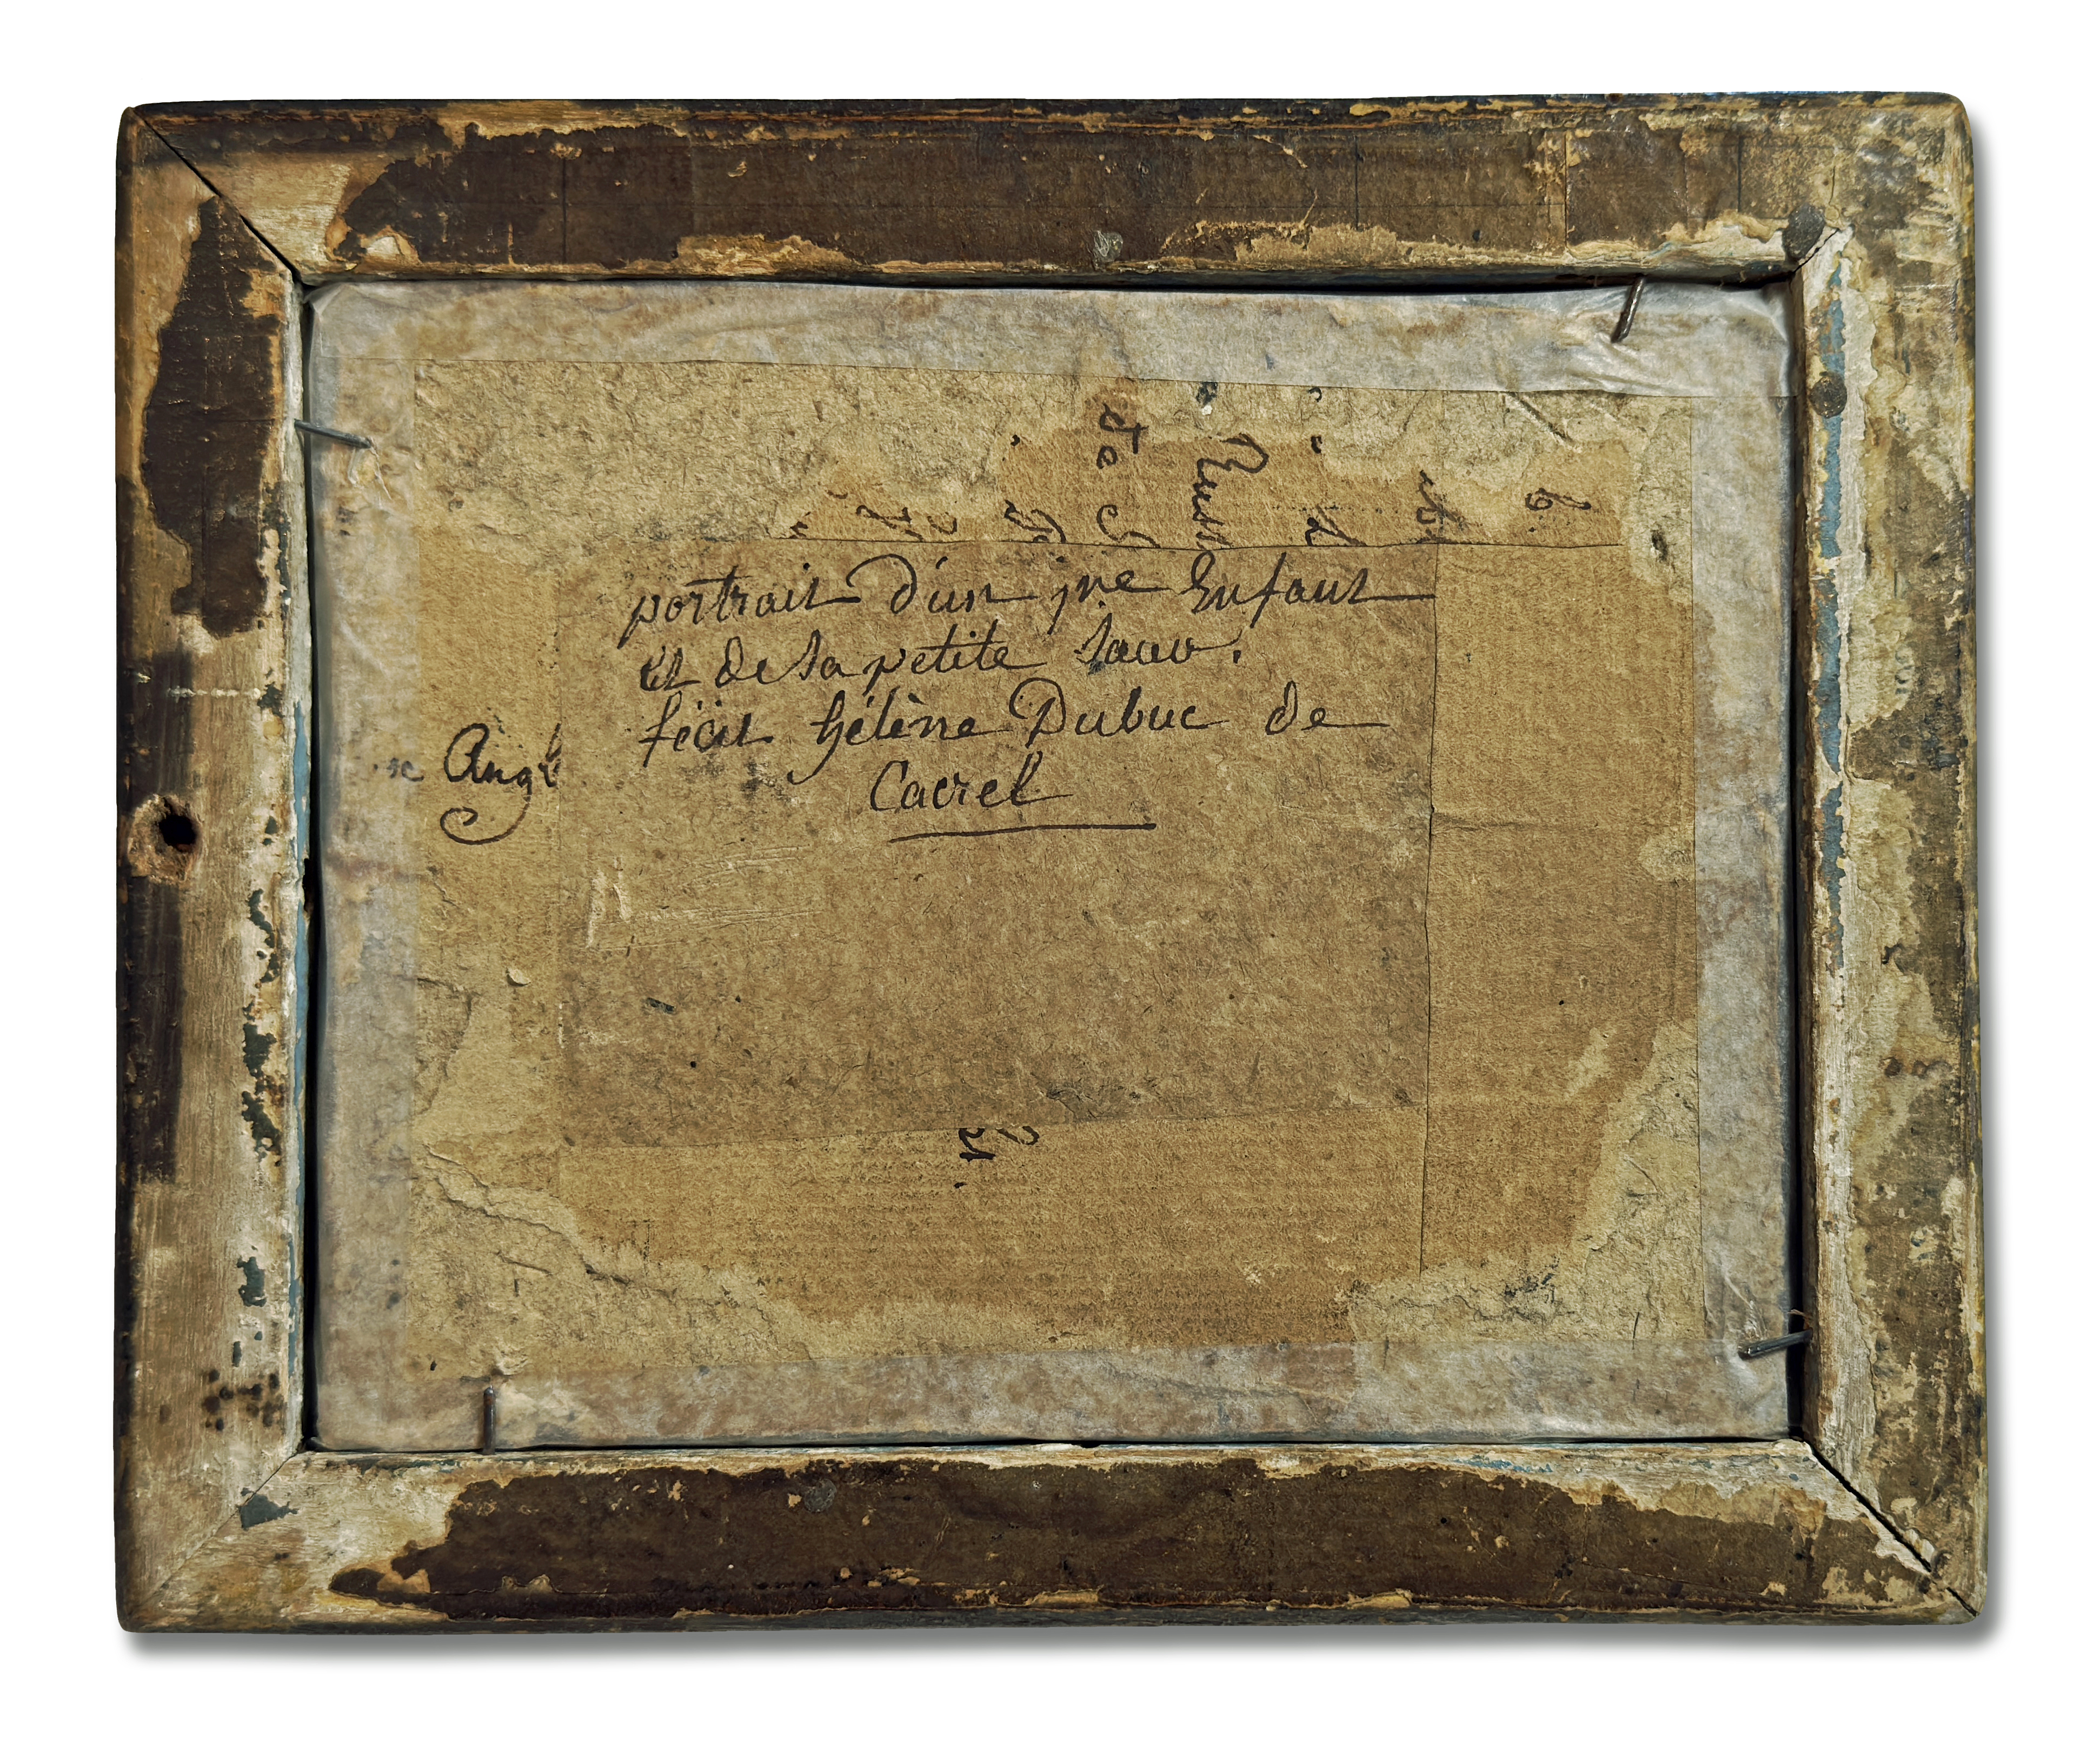 portrait d'un jne Enfant
Et de sa petite Sœur.
fécit hélène Dubuc de
Cacrel
Angl
de